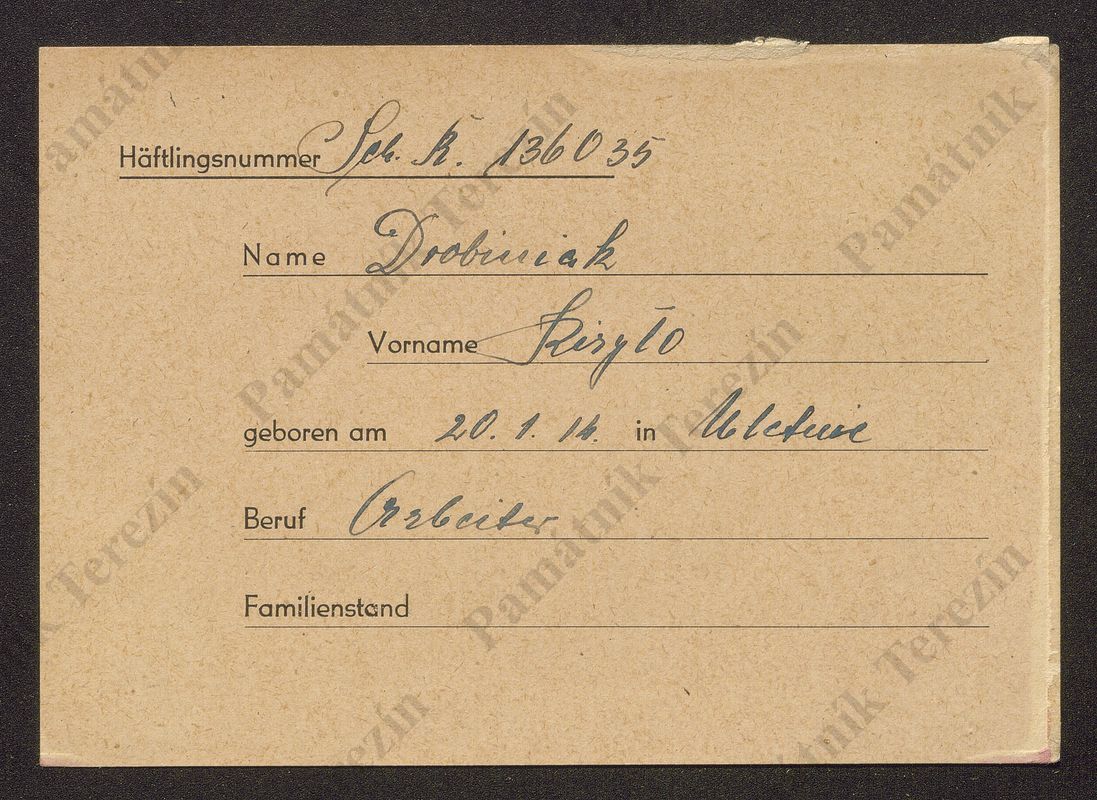 Häftlingsnummer Sch. R. 136035
Name Drobiniak
Vorname Kiryło
geboren am 20. 1. 14. in
Beruf Arbeiter
Familienstand
Památník Terezín